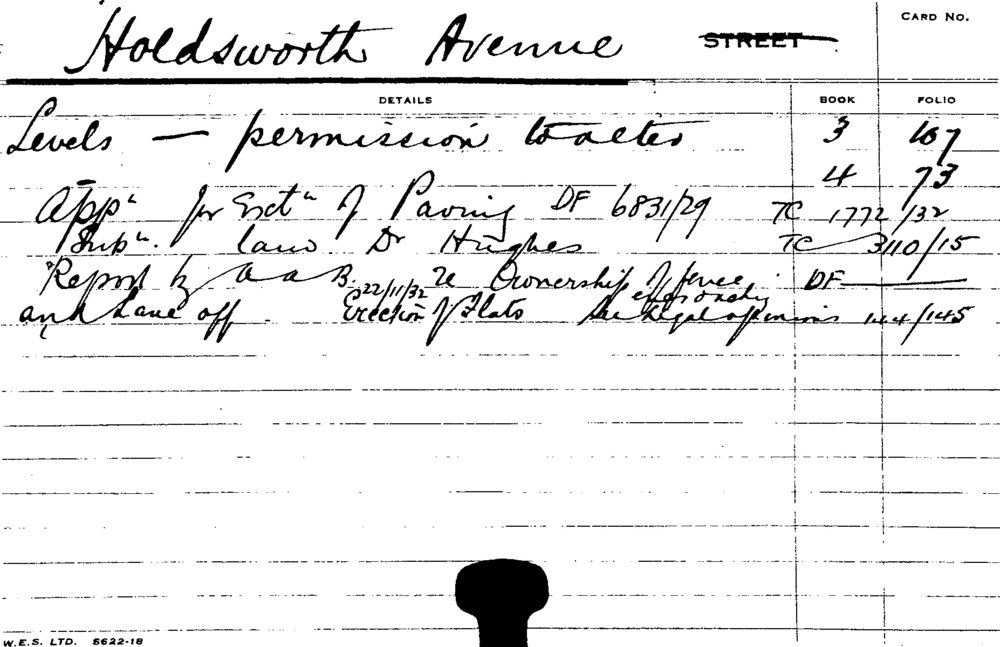 CARD NO.
Holdsworth Avenue STREET
DETAILS BOOK FOLIO
Levels — permission to alter 3 107
4 73
Appn for Extn of Paving DF 6831/29 TC 1772/32
Subn. land Dr Hughes TC 3110/15
"Report by A A B. re Ownership of fence DF ———
22/11/32
and Lane off Erection of Flats See Legal opinions 144/145
W.E.S. LTD. 6622-18